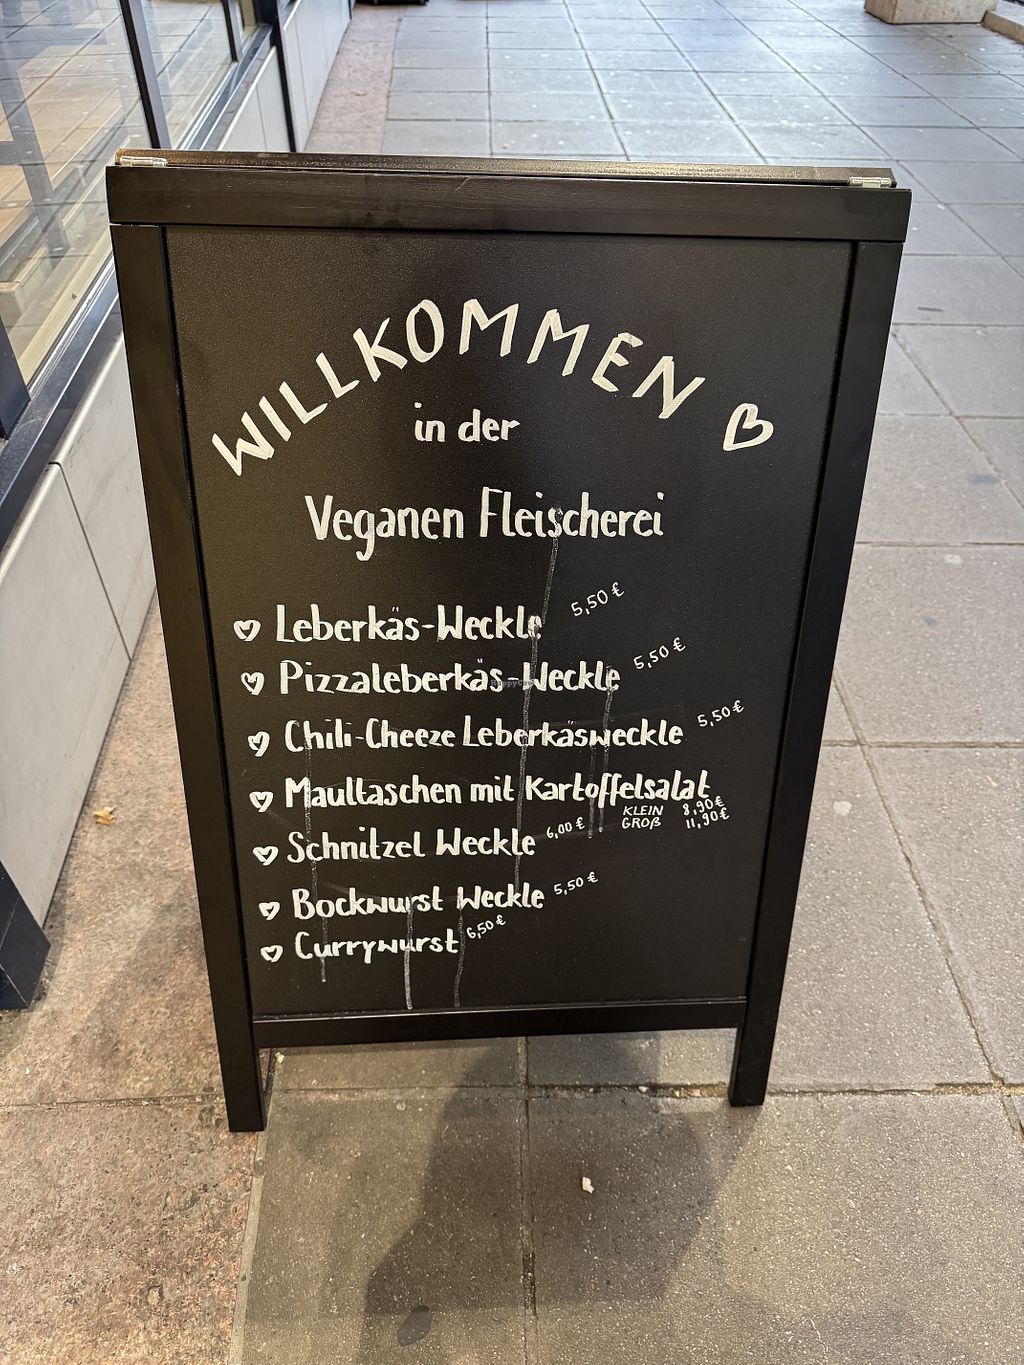 WILLKOMMEN
in der
Veganen Fleischerei
Leberkäs-Weckle 5,50 €
Pizzaleberkäs-Weckle 5,50 €
Chili-Cheeze Leberkäsweckle 5,50 €
Maultaschen mit Kartoffelsalat
KLEIN 8,90 €
GROß 11,90 €
Schnitzel Weckle 6,00 €
Bockwurst Weckle 5,50 €
Currywurst 6,50 €